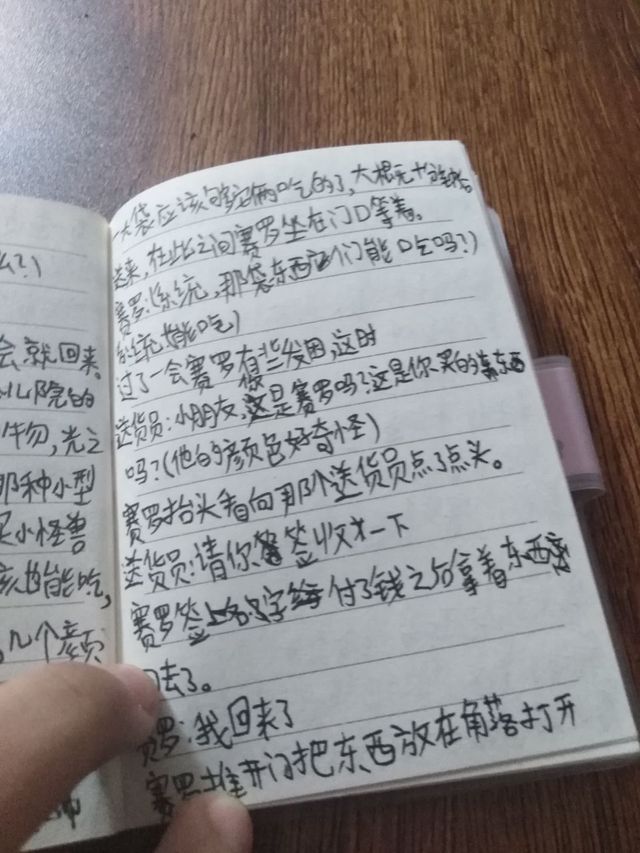 么?)
会就回来
儿院的
牛勿,光之
那种小型
小怪兽
该也能吃,
几个颜
大袋应该够它俩吃的了,大概无十分钟
送来,在此之间赛罗坐在门口等着。
赛罗:(系统,那袋东西它们能吃吗?)
系统:(能吃)
过了一会赛罗有些发困,这时
送货员:小朋友,你是赛罗吗?这是你买的东西
吗?(他的颜色好奇怪)
赛罗抬头看向那个送货员点了点头。
送货员:请你签收一下
赛罗签上名字付了钱之后拿着东西
回去了。
赛罗:我回来了
赛罗推开门把东西放在角落打开